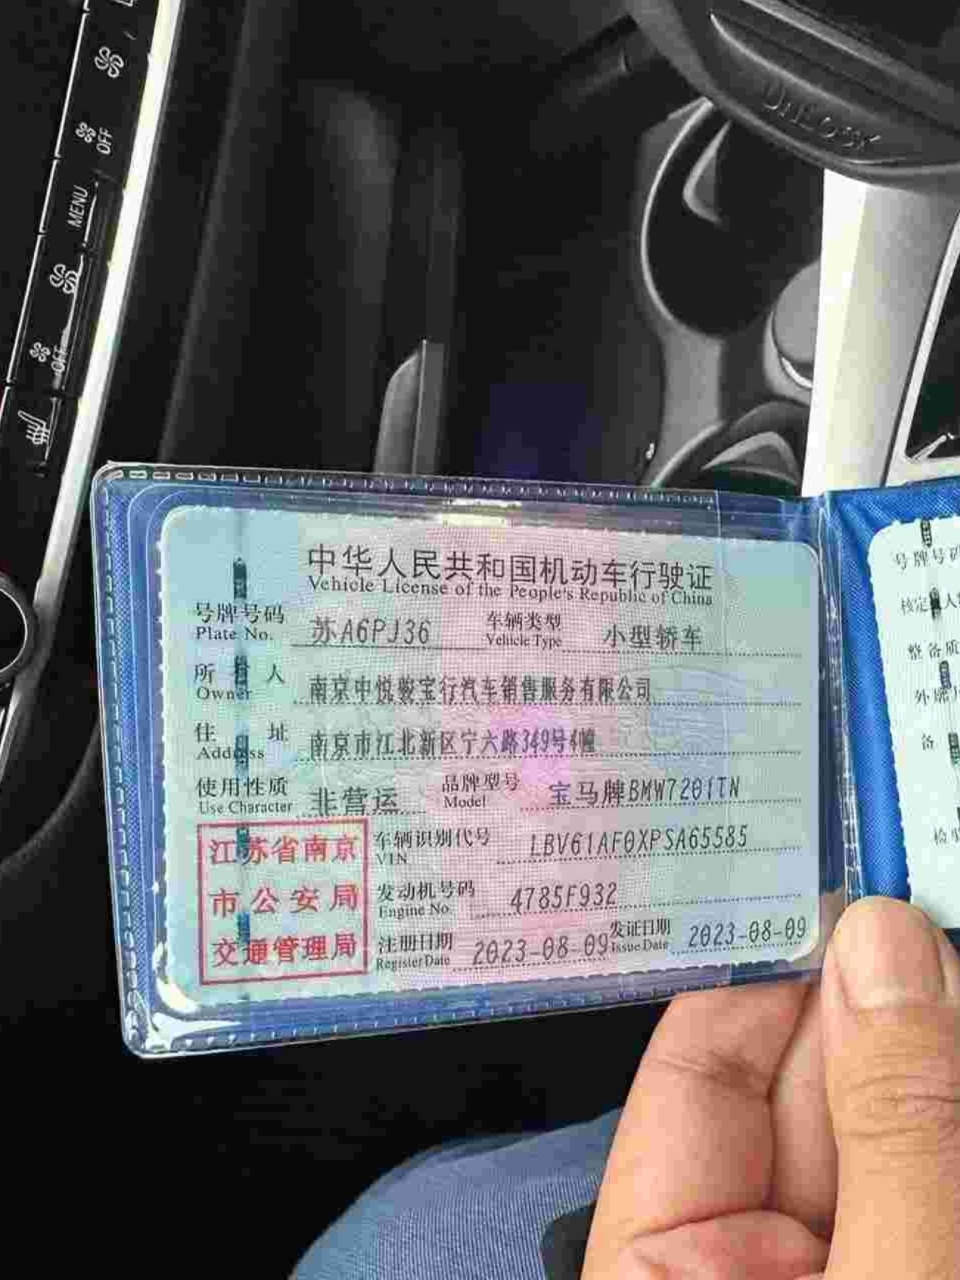 OFF
MENU
OFF
UNLOCK
中华人民共和国机动车行驶证
Vehicle License of the People's Republic of China
号牌号码 苏A6PJ36 车辆类型 小型轿车
Plate No. Vehicle Type
所 人 南京中悦骏宝行汽车销售服务有限公司
Owner
住 址 南京市江北新区宁六路349号4幢
Address
使用性质 非营运 品牌型号 宝马牌BMW7201TN
Use Character Model
江苏省南京
市公安局
交通管理局
车辆识别代号 LBV61AF0XPSA65585
VIN
发动机号码 4785F932
Engine No.
注册日期 2023-08-09 发证日期 2023-08-09
Register Date Issue Date
号牌号码
核定 人
整备质
外廓
备
检